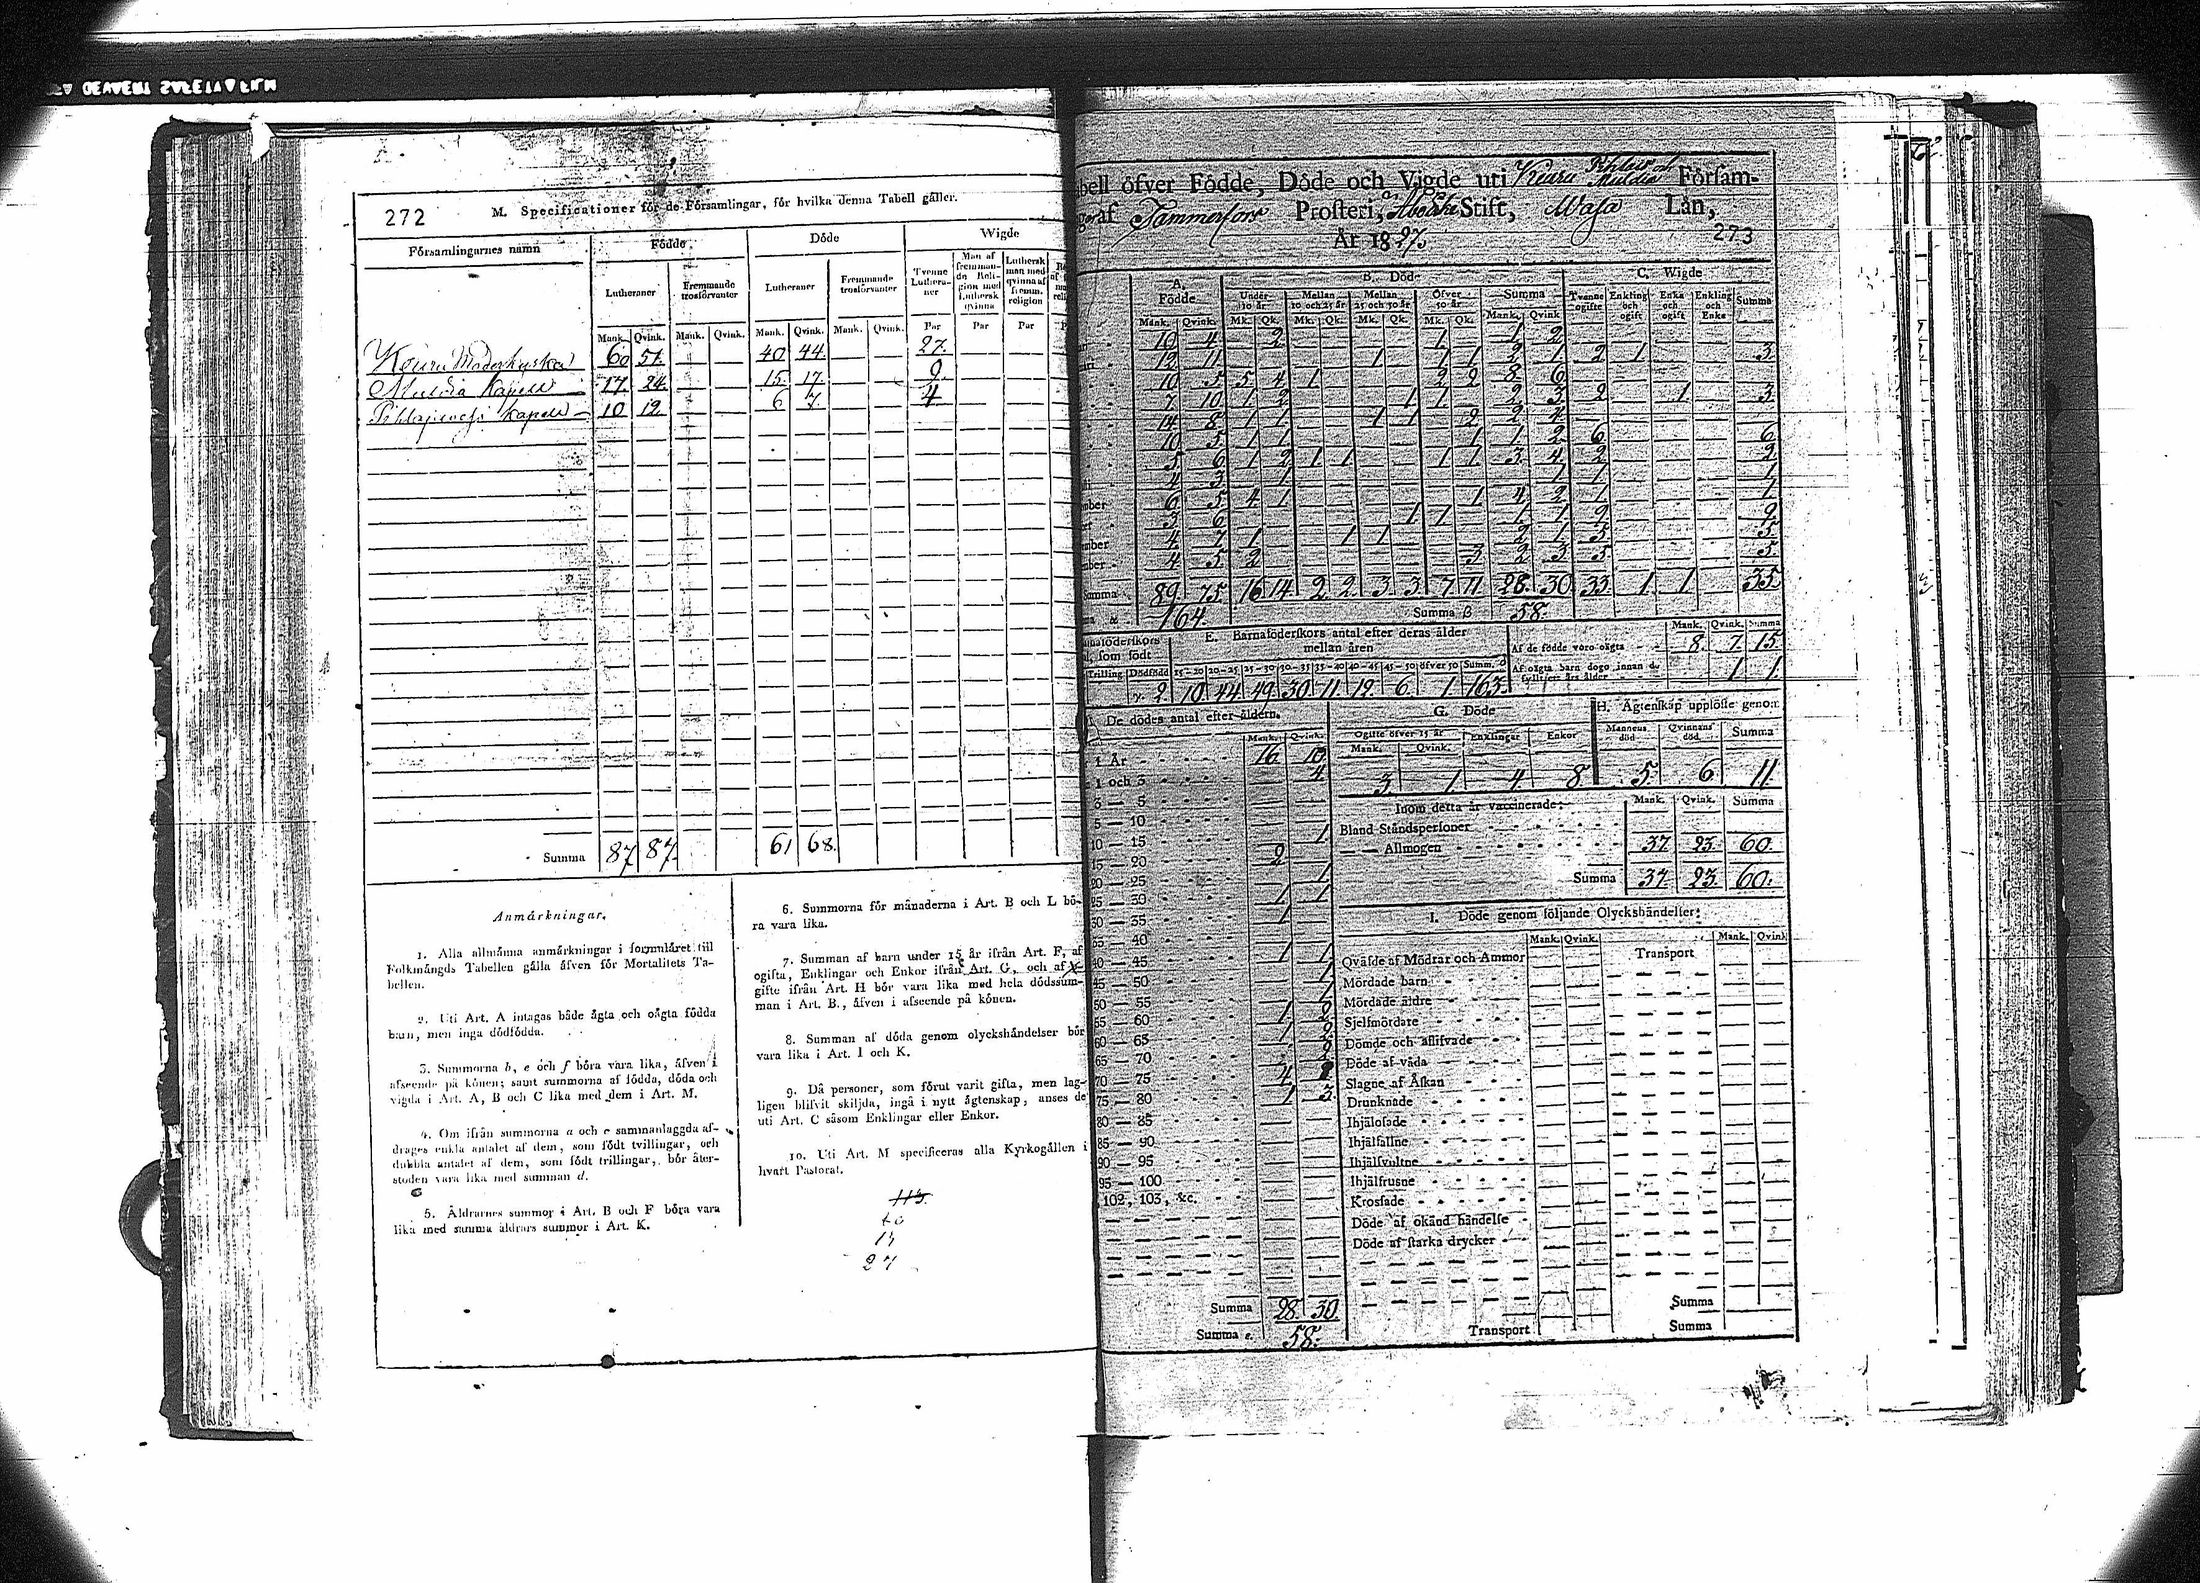 272
M. Specificationer för de Församlingar, för hvilka denna Tabell gäller.
Församlingarnes namn
Födde
Döde
Wigde
Lutheraner
Fremmande trosförvanter
Lutheraner
Fremmande trosförvanter
Tvenne Lutheraner
Man af fremmande Religion med Luthersk qvinna
Luthersk man med qvinna af fremm. religion
Mank. Qvink. Mank. Qvink. Mank. Qvink. Mank. Qvink. Par Par Par
Keuru Moderkyrka 60 51 40 44 27.
Muldia Kapell 17 24 15 17 9
Pihlajavesi Kapell 10 12 6 7 4
Summa 87 87 61 68.
Anmärkningar.
1. Alla allmänna anmärkningar i formuläret till
Folkmängds Tabellen gälla äfven för Mortalitets Ta-
bellen.
2. Uti Art. A intagas både ägta och oägta födda
barn, men inga dödfödda.
3. Summorna b, e och f böra vara lika, äfven i
afseende på könen; samt summorna af födda, döda och
vigda i Art. A, B och C lika med dem i Art. M.
4. Om ifrån summorna a och c sammanlaggda af-
drages enkla antalet af dem, som födt tvillingar, och
dubbla antalet af dem, som födt trillingar, bör åter-
stoden vara lika med summan d.
5. Åldrarnes summor i Art. B och F böra vara
lika med samma åldrars summor i Art. K.
6. Summorna för månaderna i Art. B och L bö-
ra vara lika.
7. Summan af barn under 15 år ifrån Art. F, af
ogifta, Enklingar och Enkor ifrån Art. G, och af
gifte ifrån Art. H bör vara lika med hela dödssum-
man i Art. B, äfven i afseende på könen.
8. Summan af döda genom olyckshändelser bör
vara lika i Art. I och K.
9. Då personer, som förut varit gifta, men lag-
ligen blifvit skiljda, ingå i nytt ägtenskap, anses de
uti Art. C såsom Enklingar eller Enkor.
10. Uti Art. M specificeras alla Kyrkogällen i
hvart Pastorat.
bell öfver Födde, Döde och Vigde uti Keuru Muldia Försam-
af Tammerfors Prosteri, Åbo Stift, Wasa Län,
År 1827.
273
A. Födde
B. Död
C. Wigde
Under 10 år
Mellan 10 och 25 år
Mellan 25 och 50 år
Öfver 50 år
Summa
Tvenne ogifte
Enkling och ogift
Enka och ogift
Enkling och Enka
Summa
Mank. Qvink. Mk. Qk. Mk. Qk. Mk. Qk. Mk. Qk. Mank. Qvink
10 4 2 1 1 2
12 11 1 1 1 2 1 2 1 3
10 5 5 4 1 2 2 8 6
7 10 1 2 1 1 2 3 2 1 3
14 8 1 1 1 1 2 2 4
10 5 1 1 1 1 2 6 6
5 6 1 2 1 1 1 1 3 4 2 2
4 3 1 1 1 1
6 5 4 1 1 4 2 1 1
3 6 1 1 1 1 9 9
4 7 1 1 1 2 1 5 5
4 5 2 3 2 3 5 5
89 75 16 14 2 2 3 3 7 11 28 30 33 1 1 35
164. Summa b 58.
E. Barnaföderskors antal efter deras ålder
mellan åren
som födt
Trilling Dödfödd 15–20 20–25 25–30 30–35 35–40 40–45 45–50 öfver 50 Summ. d
2 10 44 49 30 11 12 6 1 163
Mank. Qvink. Summa
Af de födde voro oägta 8 7 15
Af oägta barn dogo innan de
fyllt ett års ålder 1 1
De dödes antal efter åldern.
Mank. Qvink.
1 År 16 10
1 och 3 4
3 — 5
5 — 10
10 — 15 1
15 — 20 2
20 — 25 1
25 — 30 1 1
30 — 35 1
35 — 40
40 — 45 1 1
45 — 50 1
50 — 55 1
55 — 60 1 2
60 — 65 1 2
65 — 70 2
70 — 75 4
75 — 80 1 3
80 — 85
85 — 90
90 — 95
95 — 100
102, 103, &c.
Summa 28. 30
Summa e. 58.
G. Döde
Ogifte öfver 15 år
Enklingar Enkor
Mank. Qvink.
3 1 4 8
H. Ägtenskap upplöste genom
Mannens död Qvinnans död Summa
5 6 11
Inom detta år vaccinerade: Mank. Qvink. Summa
Bland Ståndspersoner
— — Allmogen 37 23 60.
Summa 37 23 60.
I. Döde genom följande Olyckshändelser:
Mank. Qvink. Transport Mank. Qvink
Qväfde af Mödrar och Ammor
Mördade barn
Mördade äldre
Sjelfmördare
Dömde och aflifvade
Döde af våda
Slagne af Åskan
Drunknade
Ihjälosade
Ihjälfallne
Ihjälsvultne
Ihjälfrusne
Krossade
Döde af okänd händelse
Döde af starka drycker
Transport
Summa
Summa